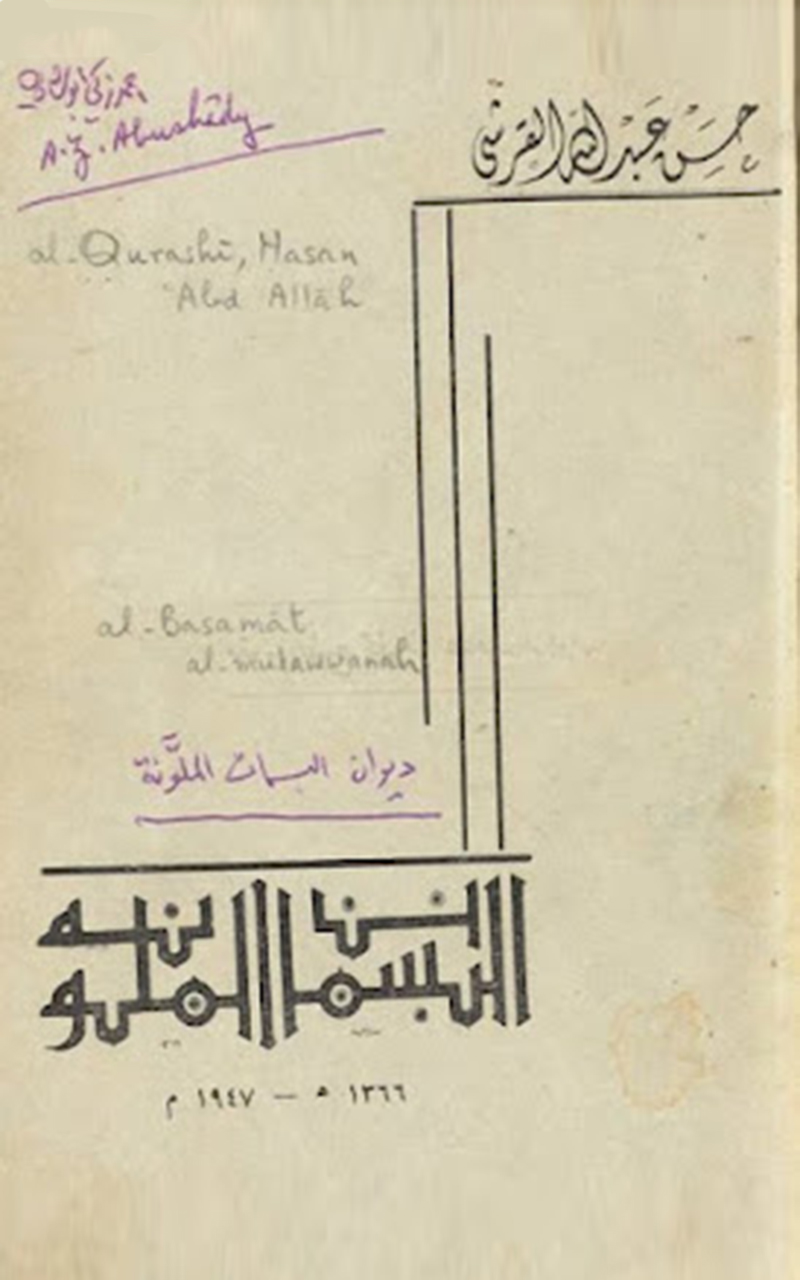 أحمد زكي أبو شادي
A. Z. Abushâdy
حسن عبد الله القرشي
al-Qurashī, Hasan
'Abd Allāh
al-Basamāt
al-mulawwanah
ديوان البسمات الملوَّنة
البسمات الملونه
١٣٦٦ ه — ١٩٤٧ م